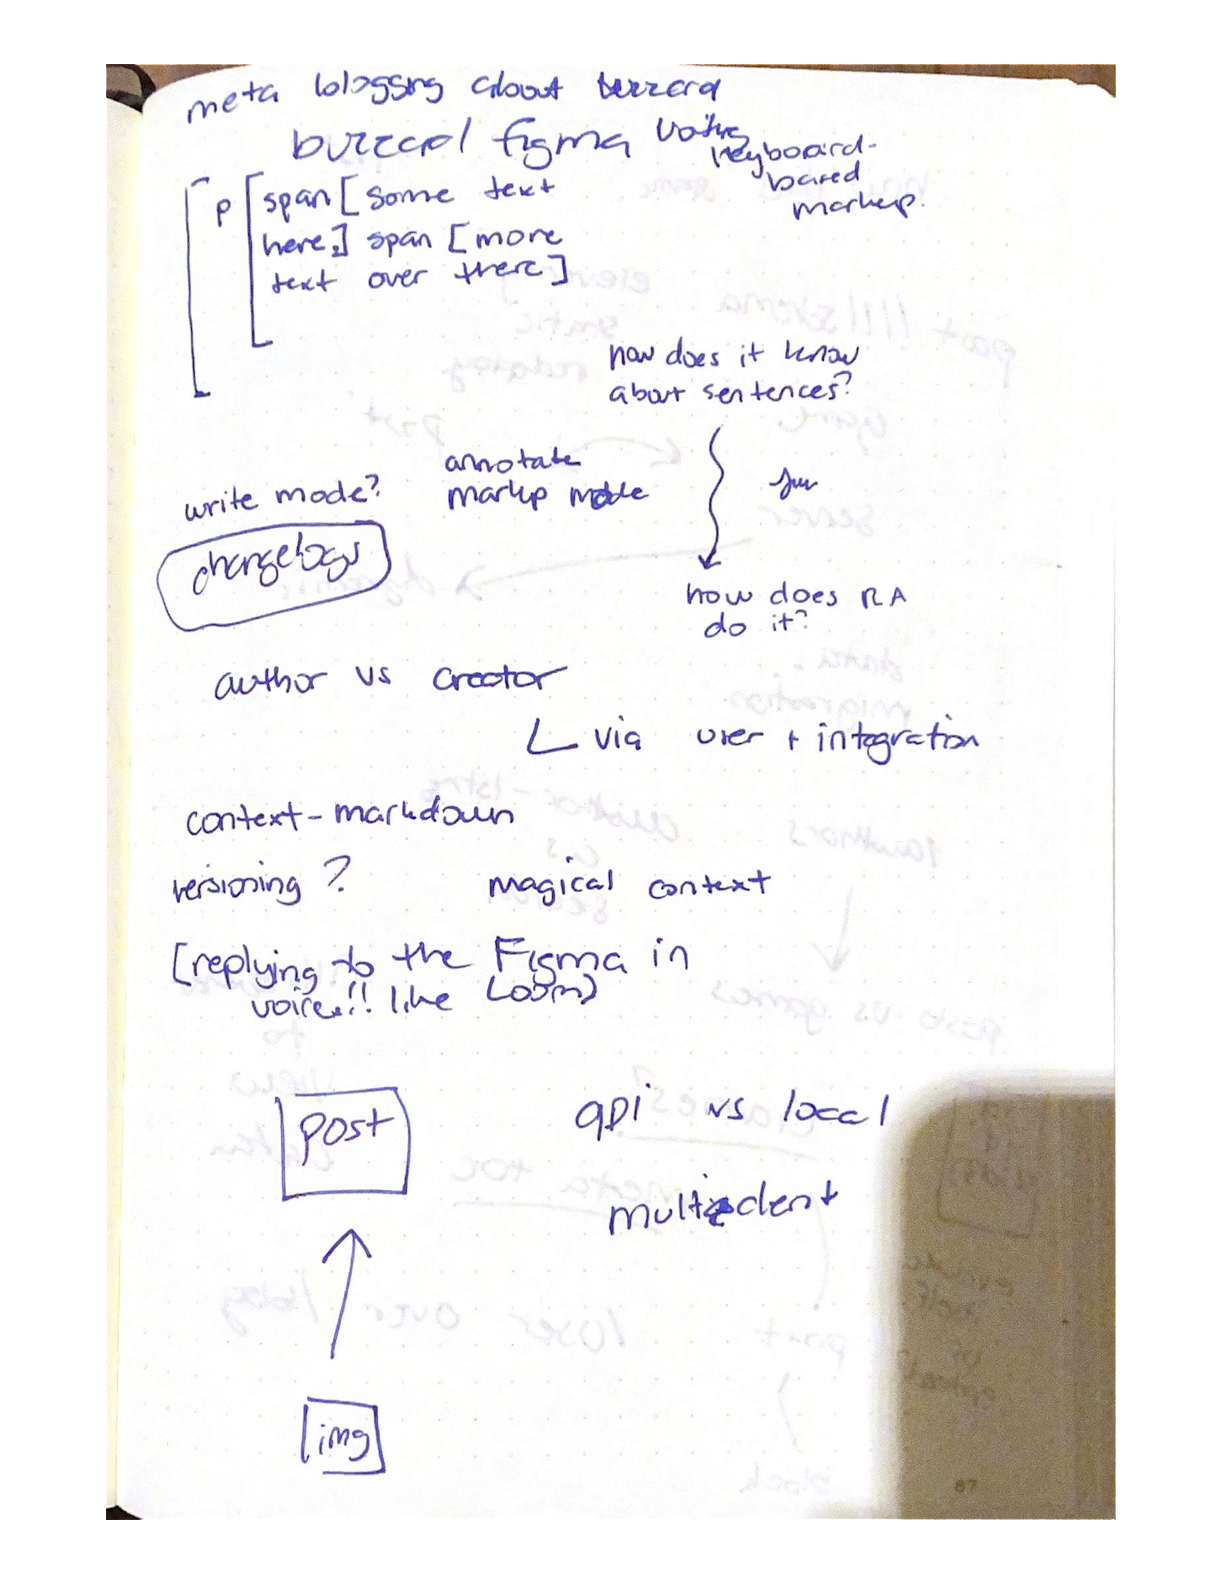 meta blogging about buzzard
buzzard figma
keyboard-
based
markup.
p span [some text
here.] span [more
text over there]
how does it know
about sentences?
write mode?
annotate
markup mode
changelogs
how does RA
do it?
author vs creator
via user + integration
context-markdown
versioning ?
magical context
[replying to the Figma in
voice!! like Loom)
post
api vs local
img
87